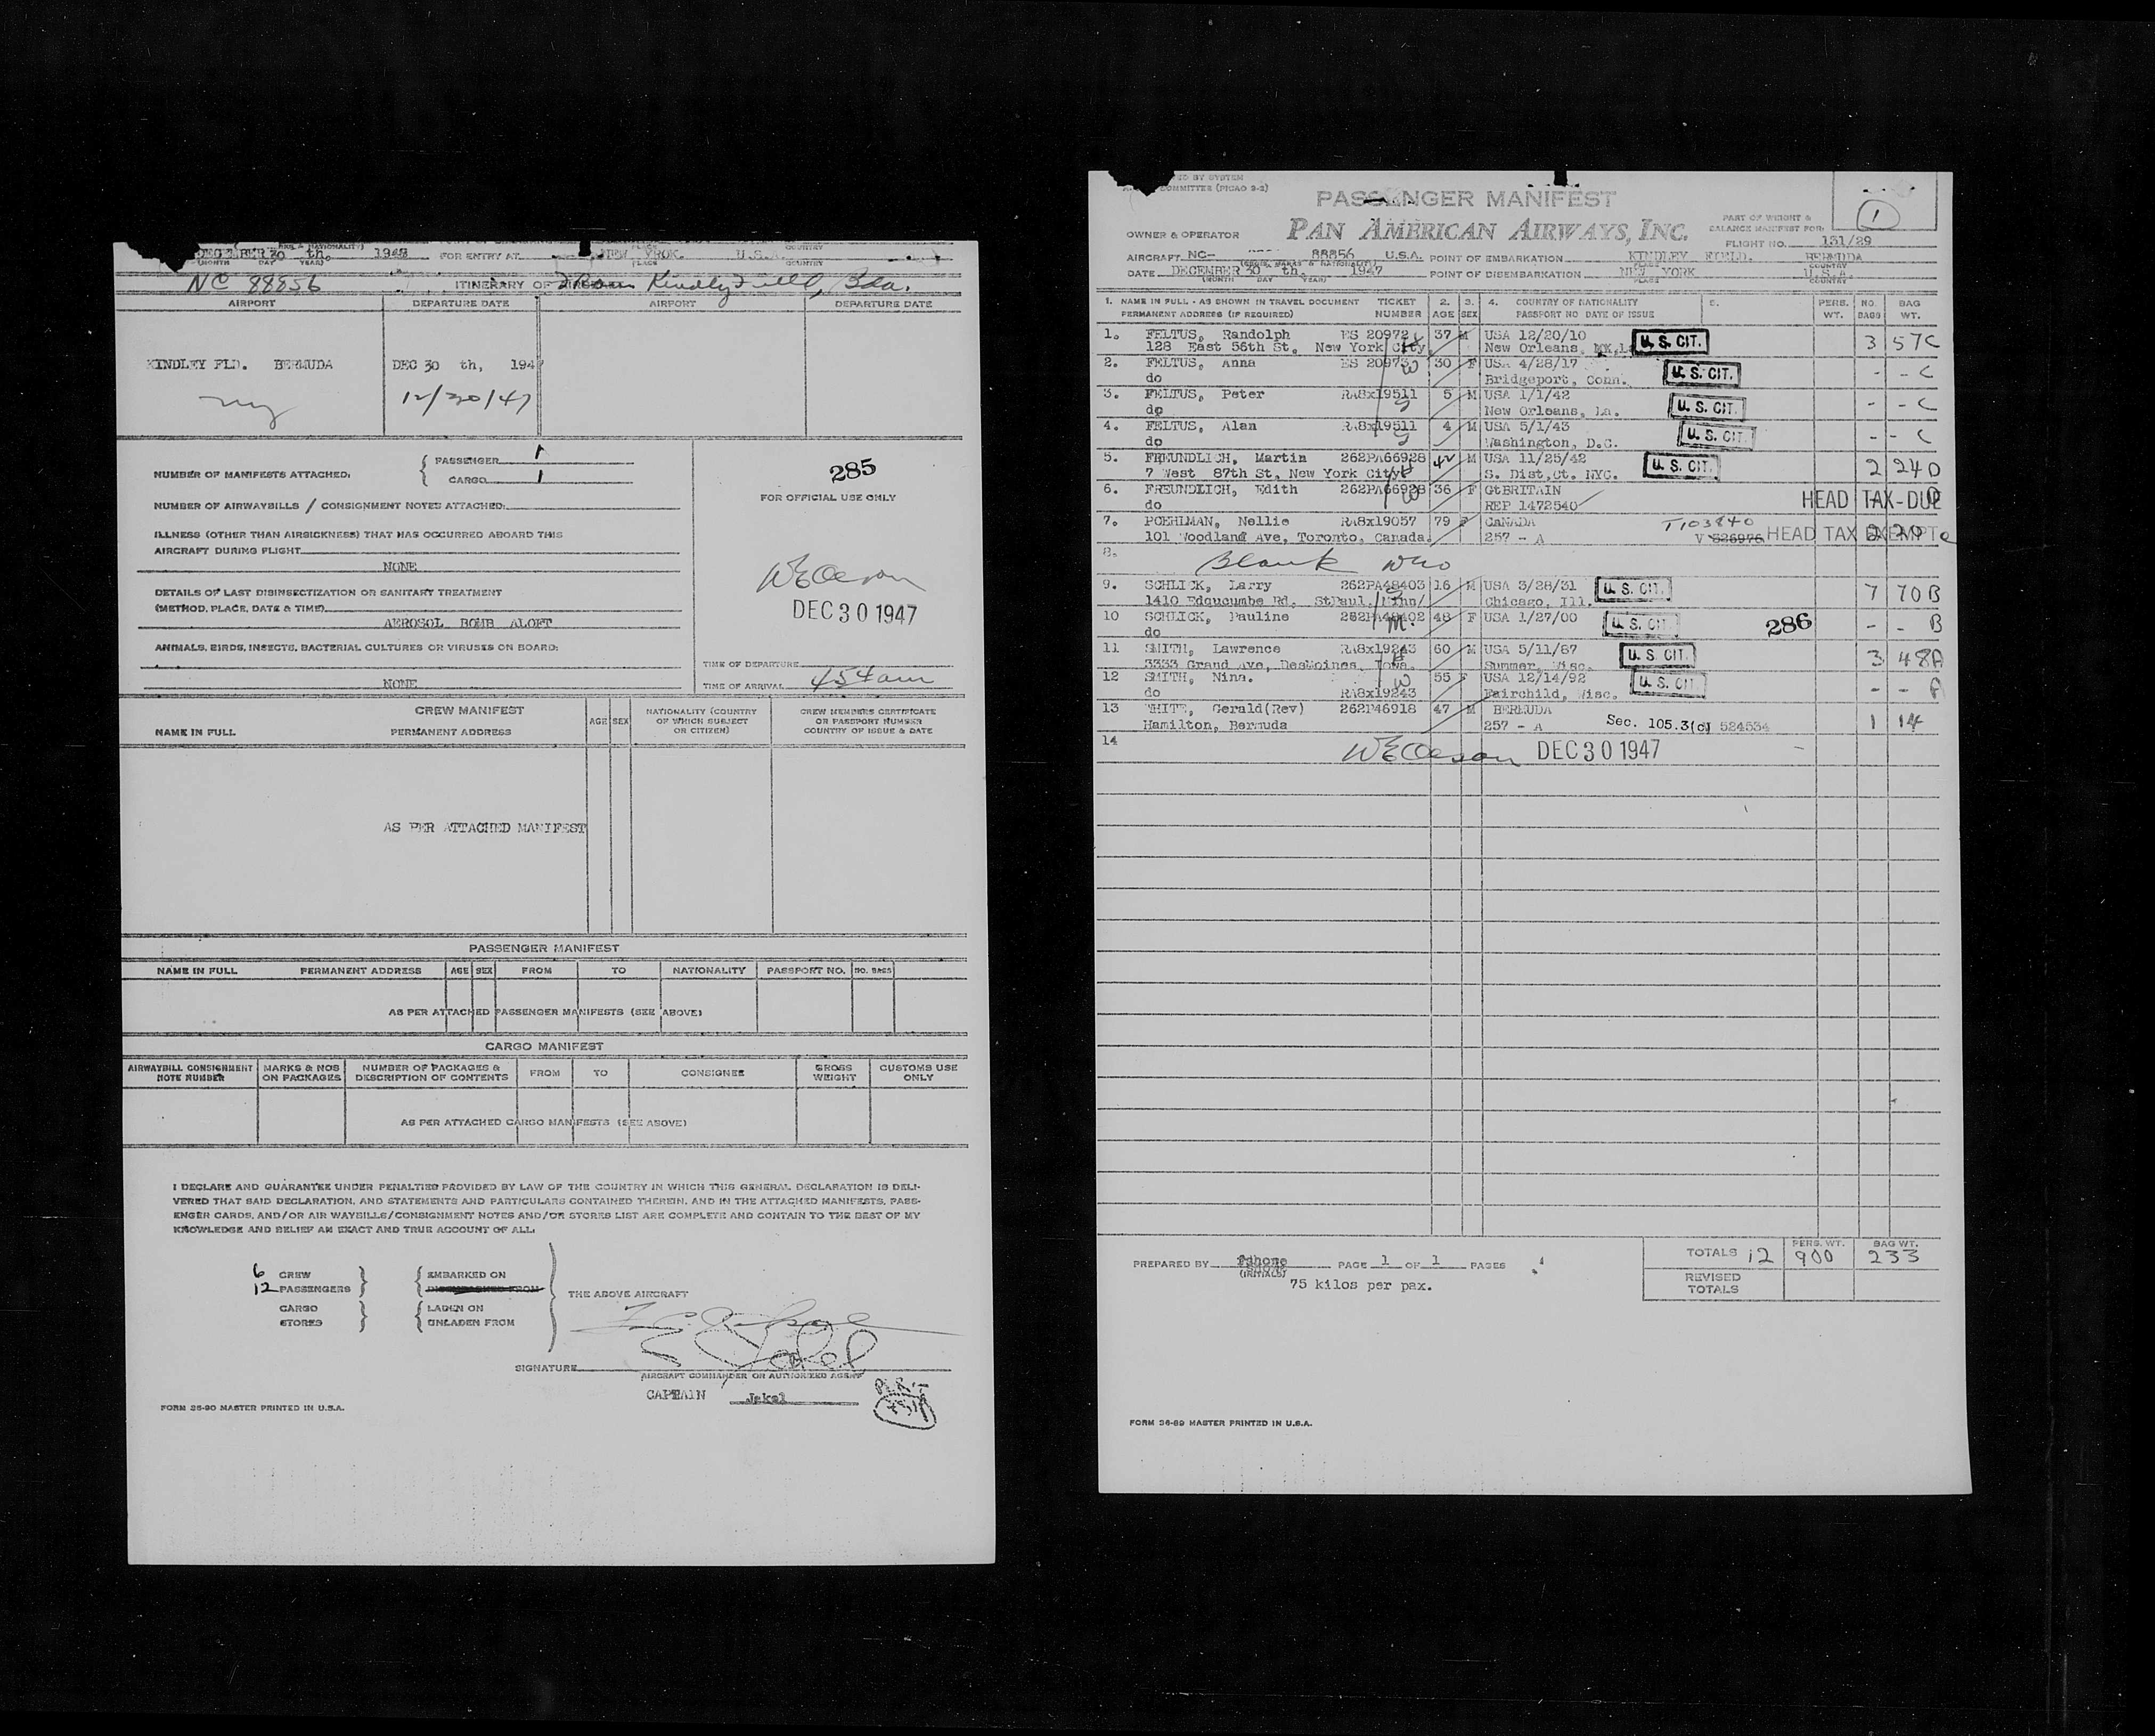 DECEMBER 30 th, 1947 FOR ENTRY AT NEW YROK. U.S.A.
(MONTH DAY YEAR) PLACE COUNTRY
NC 88856 ITINERARY OF Kindley Field, Bda.
AIRPORT DEPARTURE DATE AIRPORT DEPARTURE DATE
KINDLEY FLD. BERMUDA DEC 30 th, 1947
ny 12/30/47
NUMBER OF MANIFESTS ATTACHED: { PASSENGER 1
CARGO 1
285
FOR OFFICIAL USE ONLY
NUMBER OF AIRWAYBILLS / CONSIGNMENT NOTES ATTACHED:
ILLNESS (OTHER THAN AIRSICKNESS) THAT HAS OCCURRED ABOARD THIS
AIRCRAFT DURING FLIGHT
NONE
DETAILS OF LAST DISINSECTIZATION OR SANITARY TREATMENT
(METHOD, PLACE, DATE & TIME)
AEROSOL BOMB ALOFT
WEOleson
DEC 30 1947
ANIMALS, BIRDS, INSECTS, BACTERIAL CULTURES OR VIRUSES ON BOARD:
NONE
TIME OF DEPARTURE
TIME OF ARRIVAL 454am
CREW MANIFEST
NAME IN FULL PERMANENT ADDRESS AGE SEX NATIONALITY (COUNTRY OF WHICH SUBJECT OR CITIZEN) CREW MEMBERS CERTIFICATE OR PASSPORT NUMBER COUNTRY OF ISSUE & DATE
AS PER ATTACHED MANIFEST
PASSENGER MANIFEST
NAME IN FULL PERMANENT ADDRESS AGE SEX FROM TO NATIONALITY PASSPORT NO. NO. BAGS
AS PER ATTACHED PASSENGER MANIFESTS (SEE ABOVE)
CARGO MANIFEST
AIRWAYBILL CONSIGNMENT NOTE NUMBER MARKS & NOS ON PACKAGES NUMBER OF PACKAGES & DESCRIPTION OF CONTENTS FROM TO CONSIGNEE GROSS WEIGHT CUSTOMS USE ONLY
AS PER ATTACHED CARGO MANIFESTS (SEE ABOVE)
I DECLARE AND GUARANTEE UNDER PENALTIES PROVIDED BY LAW OF THE COUNTRY IN WHICH THIS GENERAL DECLARATION IS DELI-
VERED THAT SAID DECLARATION, AND STATEMENTS AND PARTICULARS CONTAINED THEREIN, AND IN THE ATTACHED MANIFESTS, PASS-
ENGER CARDS, AND/OR AIR WAYBILLS/CONSIGNMENT NOTES AND/OR STORES LIST ARE COMPLETE AND CONTAIN TO THE BEST OF MY
KNOWLEDGE AND BELIEF AN EXACT AND TRUE ACCOUNT OF ALL:
6 CREW EMBARKED ON
12 PASSENGERS DISEMBARKED FROM
THE ABOVE AIRCRAFT
CARGO LADEN ON
STORES UNLADEN FROM
SIGNATURE
AIRCRAFT COMMANDER OR AUTHORIZED AGENT
CAPTAIN Jekel
FORM 26-90 MASTER PRINTED IN U.S.A.
ED BY SYSTEM
COMMITTEE (PICAO 9-2)
PASSENGER MANIFEST
1
OWNER & OPERATOR PAN AMERICAN AIRWAYS, INC.
PART OF WEIGHT &
BALANCE MANIFEST FOR:
FLIGHT NO. 131/29
AIRCRAFT NC- 88856 U.S.A. POINT OF EMBARKATION KINDLEY FIELD. BERMUDA
DATE DECEMBER 30 th, 1947 POINT OF DISEMBARKATION NEW YORK U.S.A.
(MONTH DAY YEAR) PLACE COUNTRY
1. NAME IN FULL - AS SHOWN IN TRAVEL DOCUMENT TICKET 2. 3. 4. COUNTRY OF NATIONALITY 5. PERS. NO. BAG
PERMANENT ADDRESS (IF REQUIRED) NUMBER AGE SEX PASSPORT NO DATE OF ISSUE WT. BAGS WT.
1. FELTUS, Randolph ES 20972 37 M USA 12/20/10 U. S. CIT. 3 57C
123 East 56th St, New York City. New Orleans,
2. FELTUS, Anna ES 20973 30 F USA 4/28/17 U. S. CIT. - - C
do Bridgeport, Conn.
3. FELTUS, Peter RA8x19511 5 M USA 1/1/42 U. S. CIT. - - C
do New Orleans, La.
4. FELTUS, Alan RA8x19511 4 M USA 5/1/43 U. S. CIT. - - C
do Washington, D.C.
5. FREUNDLICH, Martin 262PA66928 42 M USA 11/25/42 U. S. CIT. 2 24D
7 West 87th St, New York City S. Dist,Ct. NYC.
6. FREUNDLICH, Edith 262PA66928 36 F GtBRITAIN HEAD TAX-DUE
do REP 1472540
7. POEHLMAN, Nellie RA8x19057 79 F CANADA T103840
101 Woodland Ave, Toronto, Canada. 257 - A V 526976 HEAD TAX EXEMPT 2 20
8. Blank WEO
9. SCHLICK, Larry 262PA48403 16 M USA 3/28/31 U. S. CIT. 7 70B
1410 Edgucumbe Rd, StPaul, Minn/ Chicago, Ill.
10 SCHLICK, Pauline 262PA48402 48 F USA 1/27/00 U. S. CIT. 286 - - B
do
11 SMITH, Lawrence RA8x19243 60 M USA 5/11/87 U. S. CIT. 3 48A
3333 Grand Ave, DesMoines, Iowa. Summer, Wisc.
12 SMITH, Nina. 55 F USA 12/14/92 U. S. CIT. - - A
do RA8x19243 Fairchild, Wisc.
13 WHITE, Gerald(Rev) 262P46918 47 M BERMUDA 1 14
Hamilton, Bermuda 257 - A Sec. 105.3(c) 524534
14 WEOleson DEC 30 1947
TOTALS 12 PERS. WT. 900 BAG WT. 233
PREPARED BY (INITIALS) PAGE 1 OF 1 PAGES
75 kilos per pax.
REVISED TOTALS
FORM 26-89 MASTER PRINTED IN U.S.A.